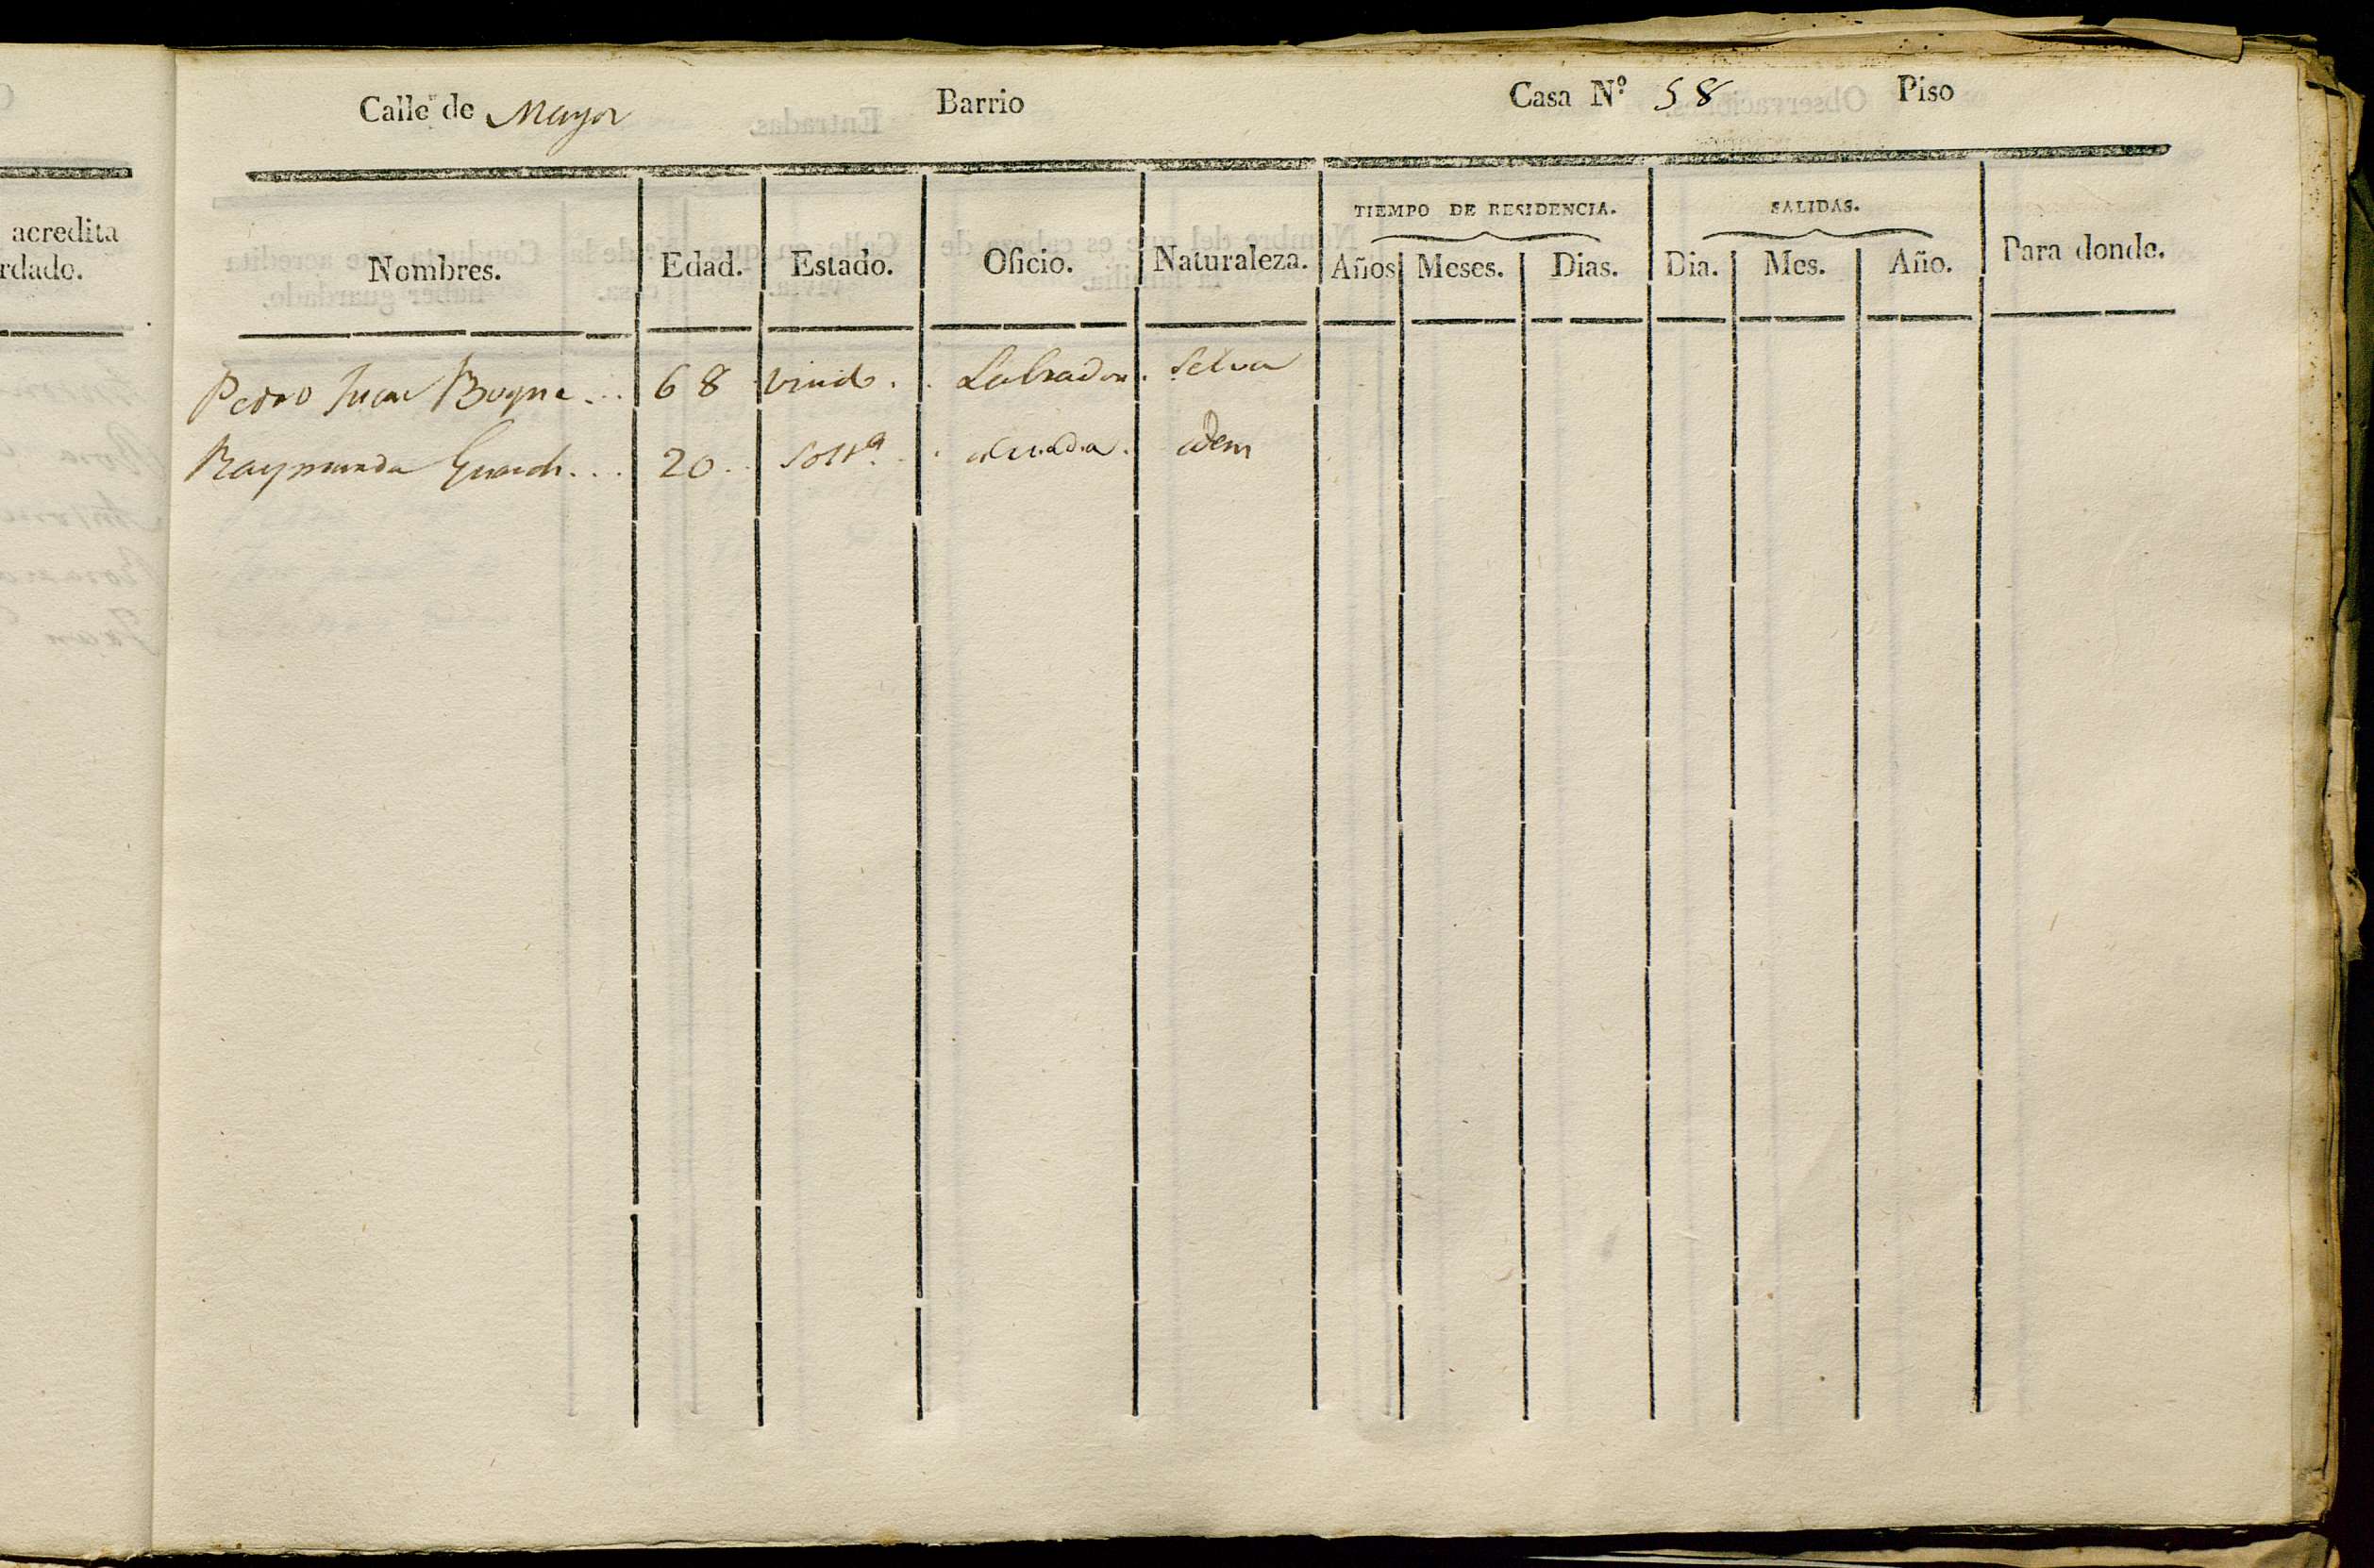 acredita
rdado.
Calle de Mayor Barrio Casa Nº 58 Piso
TIEMPO DE RESIDENCIA. SALIDAS.
Nombres. Edad. Estado. Oficio. Naturaleza. Años Meses. Dias. Dia. Mes. Año. Para donde.
Pedro Juan 68 viudo. Labrador. Selva
Raymunda 20 solt.ª criada. idem